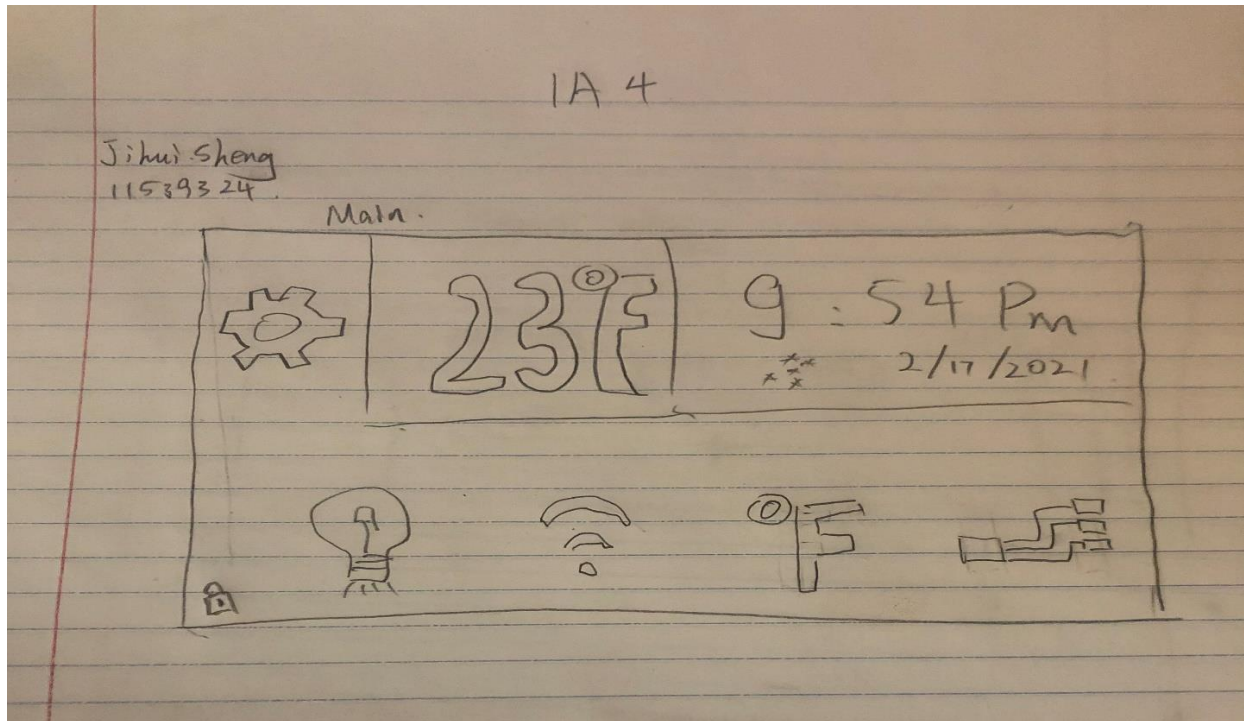 IA 4
Jihui Sheng
11539324.
Main.
23°F
9:54 Pm
2/17/2021
°F